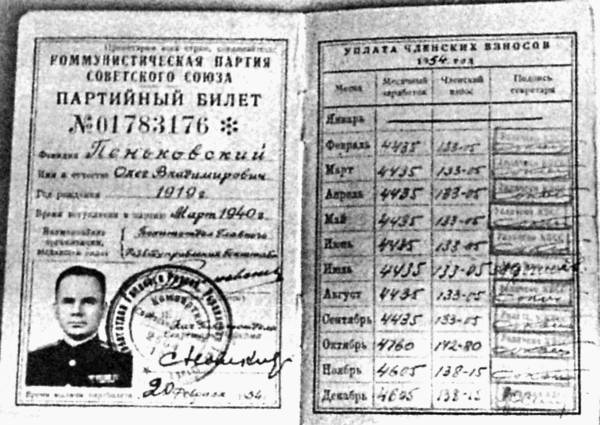 Пролетарии всех стран, соединяйтесь!
КОММУНИСТИЧЕСКАЯ ПАРТИЯ
СОВЕТСКОГО СОЮЗА
ПАРТИЙНЫЙ БИЛЕТ
№01783176 ✻
Фамилия Пеньковский
Имя и отчество Олег Владимирович
Год рождения 1919г
Время вступления в партию Март 1940г.
Наименование
организации,
выдавшей билет
Политотдел Главного
20 февраля 1954.
УПЛАТА ЧЛЕНСКИХ ВЗНОСОВ
1954 год
Месяц Месячный заработок Членский взнос Подпись секретаря
Январь
Февраль 4435 133-05
Март 4435 133-05
Апрель 4435 133-05
Май 4435 133-05
Июнь 4435 133-05
Июль 4435 133-05
Август 4435 133-05
Сентябрь 4435 133-05
Октябрь 4760 142-80
Ноябрь 4605 138-15
Декабрь 4605 138-15